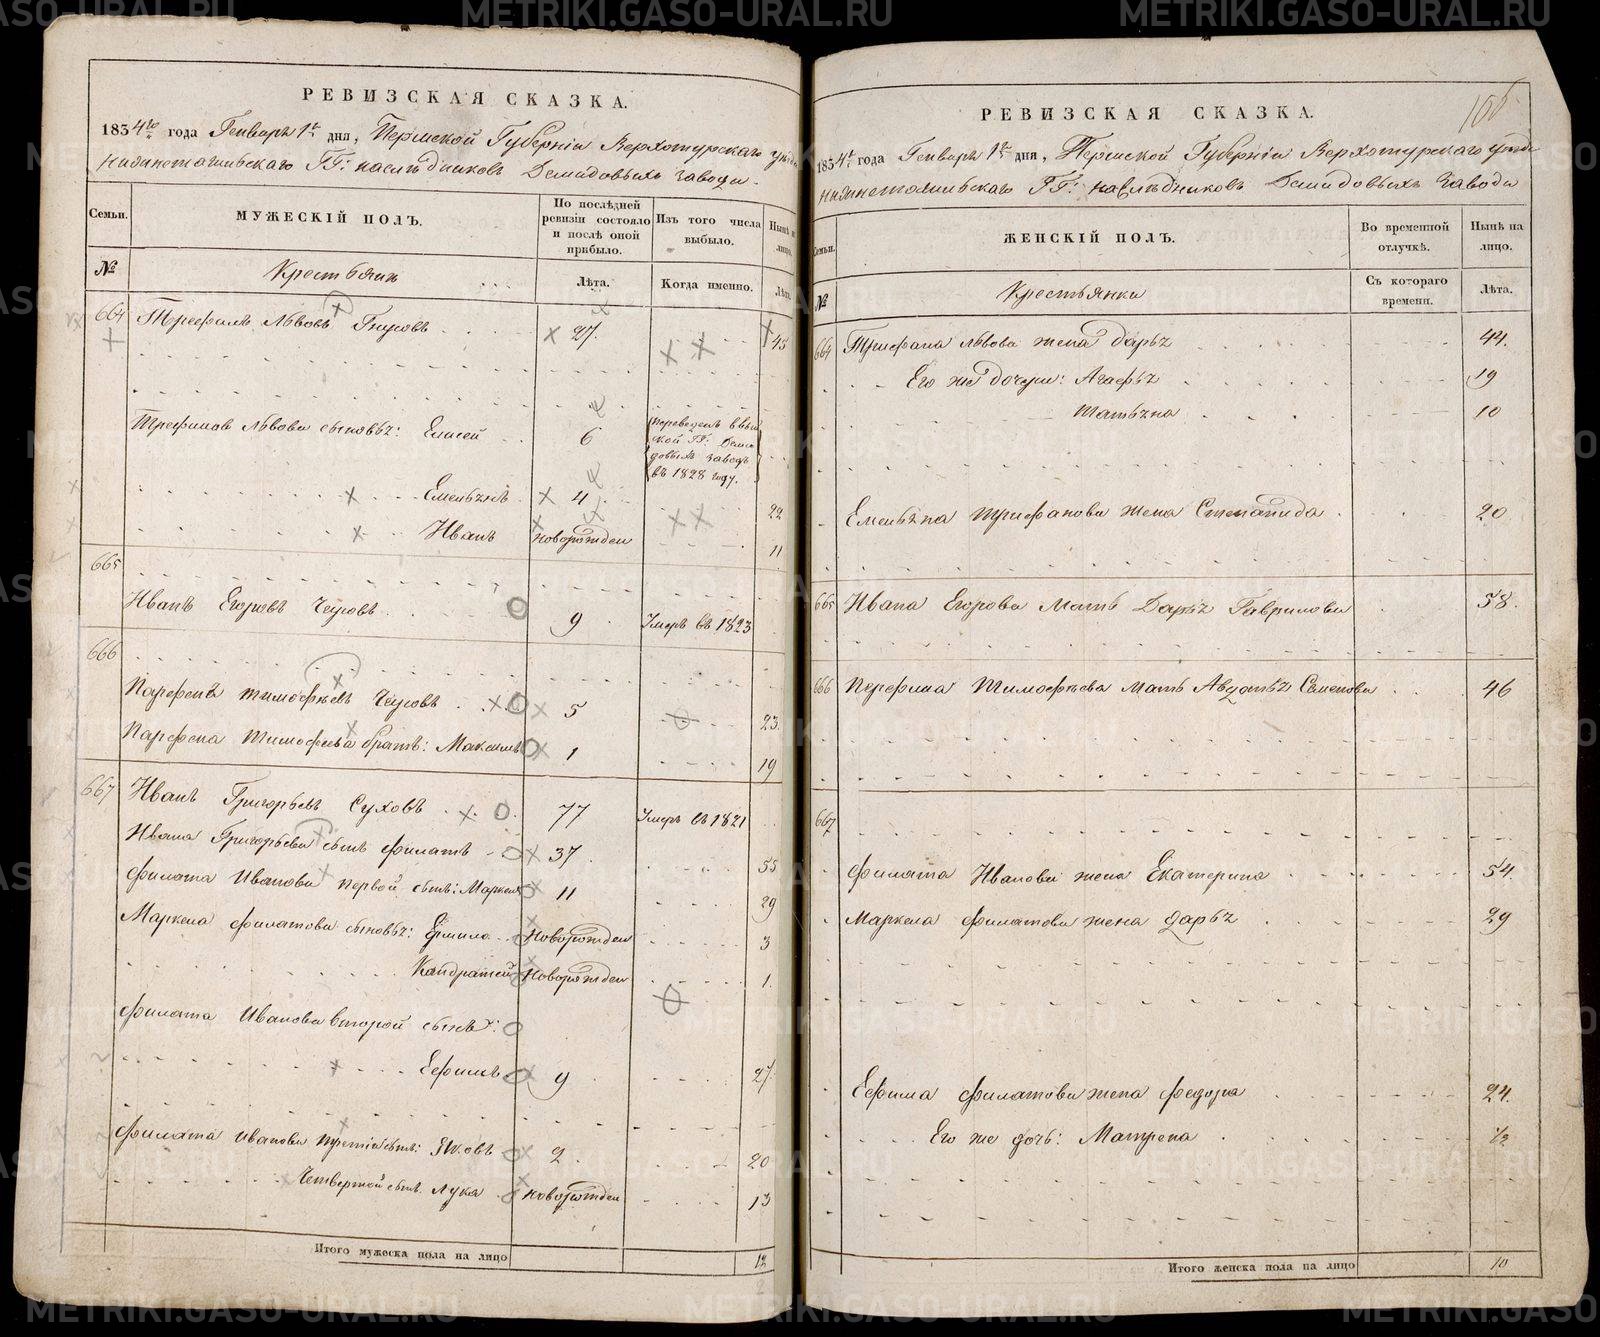 РЕВИЗСКАЯ СКАЗКА.
1834го года Генваря 1го дня, Пермской Губерніи Верхотурскаго уѣзда
Нижнетагильскаго ГГ: наслѣдниковъ Демидовыхъ завода.
Семьи.
МУЖЕСКІЙ ПОЛЪ.
По послѣдней ревизіи состояло и послѣ оной прибыло.
Изъ того числа выбыло.
Нынѣ на лицо.
№
Крестьяне
Лѣта.
Когда именно.
Лѣта.
664 Львовъ 27. 45
Львова сыновья: Елисей 6 Переведенъ в ГГ: Демидовыхъ заводъ въ 1828 году.
Емельянъ 4 22
Иванъ новорожден 11
665
Иванъ Егоровъ 9 Умеръ въ 1823
666
Парфенъ Тимофѣевъ 5 23
Парфена Тимофеева братъ: Максимъ 1 19
667 Иванъ Григорьевъ Суховъ 77 Умеръ въ 1821
Ивана Григорьева сынъ Филатъ 37 55
Филата Иванова первой сынъ: Маркелъ 11 29
Маркела Филатова сыновья: Ермила Новорожден 3
Кандратей Новорожден 1
Филата Иванова второй сынъ:
Ефимъ 9 27
Филата Иванова третій сынъ: Яковъ 2 20
Четвертой сынъ Лука новорожден 13
Итого мужеска пола на лицо 12
РЕВИЗСКАЯ СКАЗКА.
1834го года Генваря 1го дня, Пермской Губерніи Верхотурскаго уѣзда
Нижнетагильскаго ГГ: наслѣдниковъ Демидовыхъ завода
Семьи.
ЖЕНСКІЙ ПОЛЪ.
Во временной отлучкѣ.
Нынѣ на лицо.
№
Крестьянки
Съ котораго времени.
Лѣта.
664 Трифана Львова жена Дарья 44.
Его же дочери: Агафья 19
Татьяна 10
Емельяна Трифанова жена Степанида 20
665 Ивана Егорова мать Дарья Гаврилова 58.
666 Перфина Тимофѣева мать Авдотья Семенова 46
667
Филата Иванова жена Екатерина 54
Маркела Филатова жена Дарья 29
Ефима Филатова жена Федора 24
Его же дочь: Матрена 1/2
Итого женска пола на лицо 10
METRIKI.GASO-URAL.RU